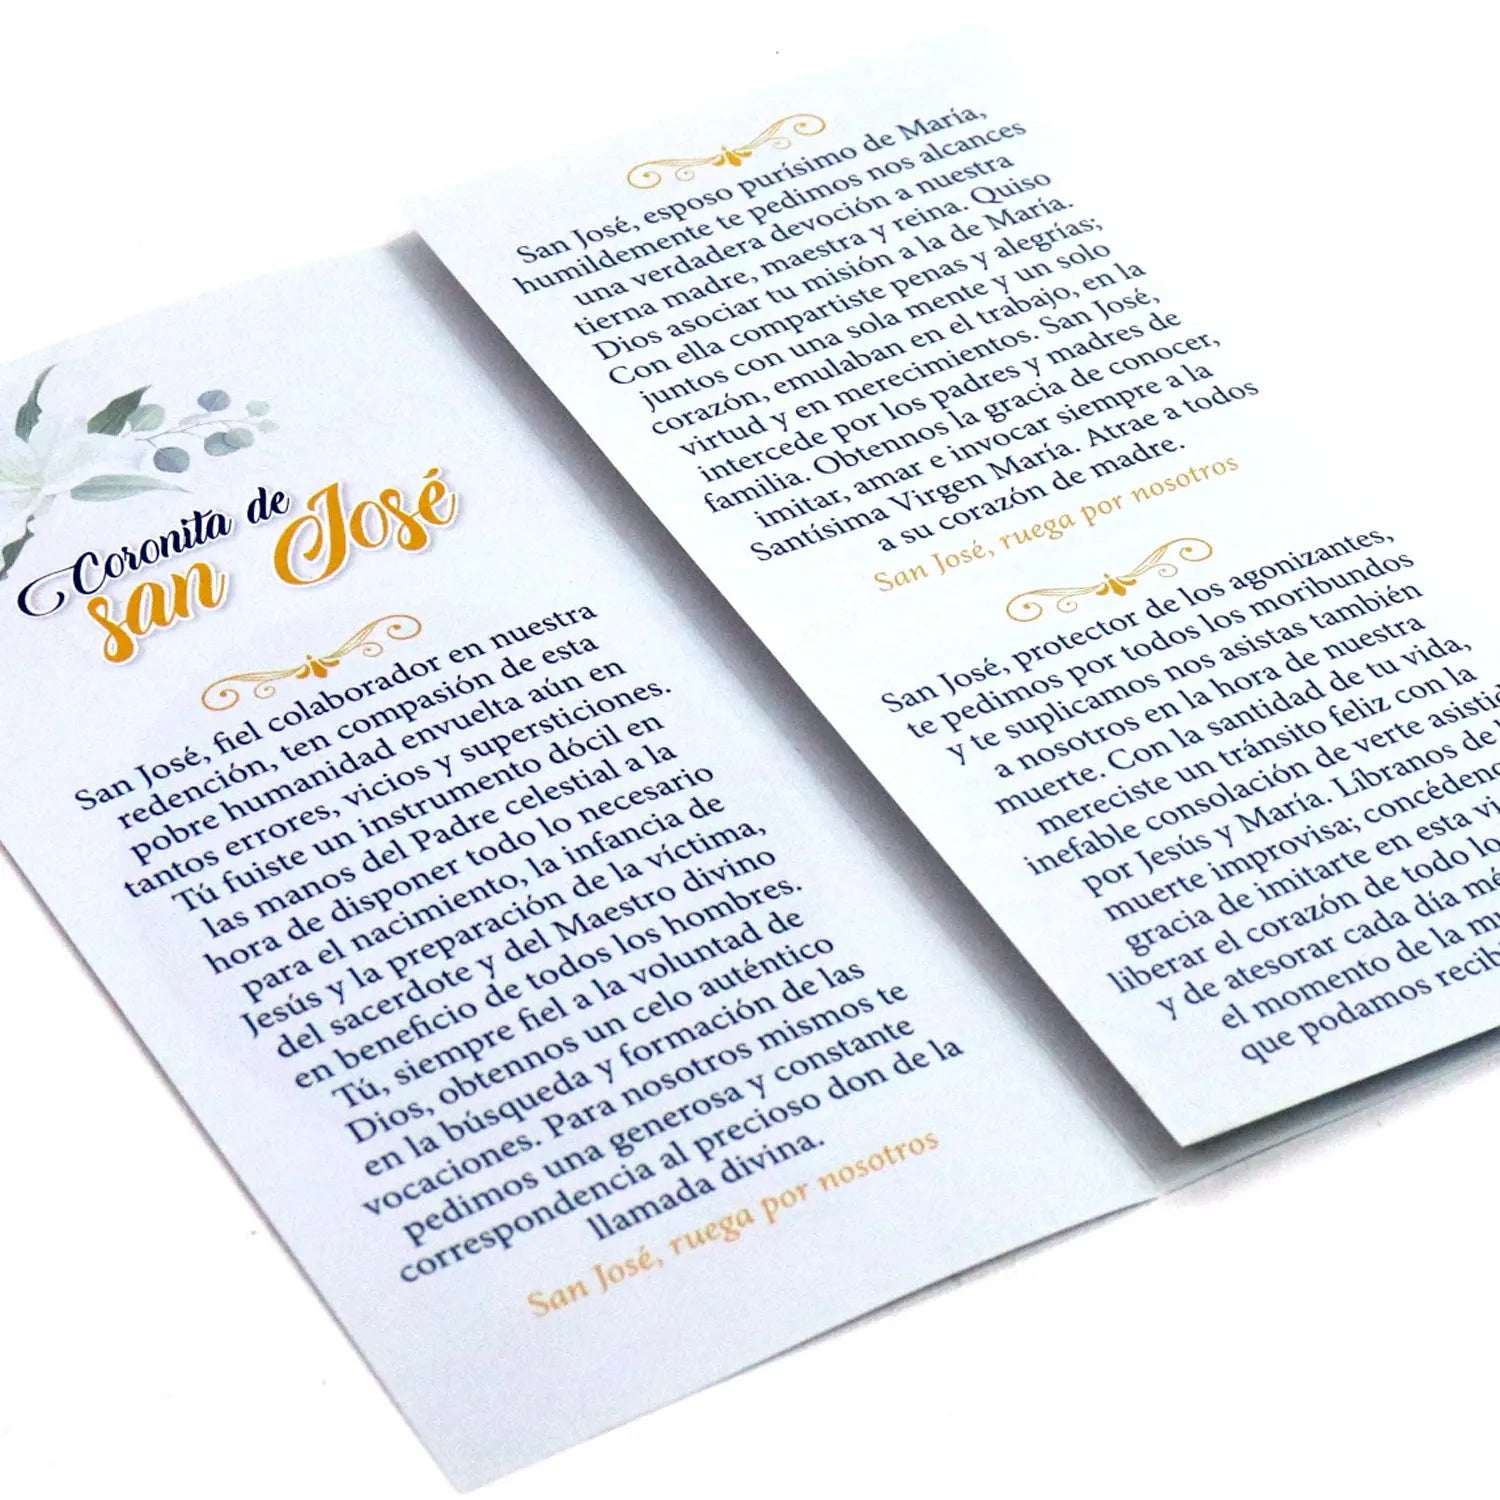 Coronita de
san José
San José, fiel colaborador en nuestra
redención, ten compasión de esta
pobre humanidad envuelta aún en
tantos errores, vicios y supersticiones.
Tú fuiste un instrumento dócil en
las manos del Padre celestial a la
hora de disponer todo lo necesario
para el nacimiento, la infancia de
Jesús y la preparación de la víctima,
del sacerdote y del Maestro divino
en beneficio de todos los hombres.
Tú, siempre fiel a la voluntad de
Dios, obtennos un celo auténtico
en la búsqueda y formación de las
vocaciones. Para nosotros mismos te
pedimos una generosa y constante
correspondencia al precioso don de la
llamada divina.
San José, ruega por nosotros
San José, esposo purísimo de María,
humildemente te pedimos nos alcances
una verdadera devoción a nuestra
tierna madre, maestra y reina. Quiso
Dios asociar tu misión a la de María.
Con ella compartiste penas y alegrías;
juntos con una sola mente y un solo
corazón, emulaban en el trabajo, en la
virtud y en merecimientos. San José,
intercede por los padres y madres de
familia. Obtennos la gracia de conocer,
imitar, amar e invocar siempre a la
Santísima Virgen María. Atrae a todos
a su corazón de madre.
San José, ruega por nosotros
San José, protector de los agonizantes,
te pedimos por todos los moribundos
y te suplicamos nos asistas también
a nosotros en la hora de nuestra
muerte. Con la santidad de tu vida,
mereciste un tránsito feliz con la
inefable consolación de verte
por Jesús y María. Líbranos de
muerte improvisa;
gracia de imitarte en esta
liberar el corazón de todo
y de atesorar cada día
el momento de la
que podamos